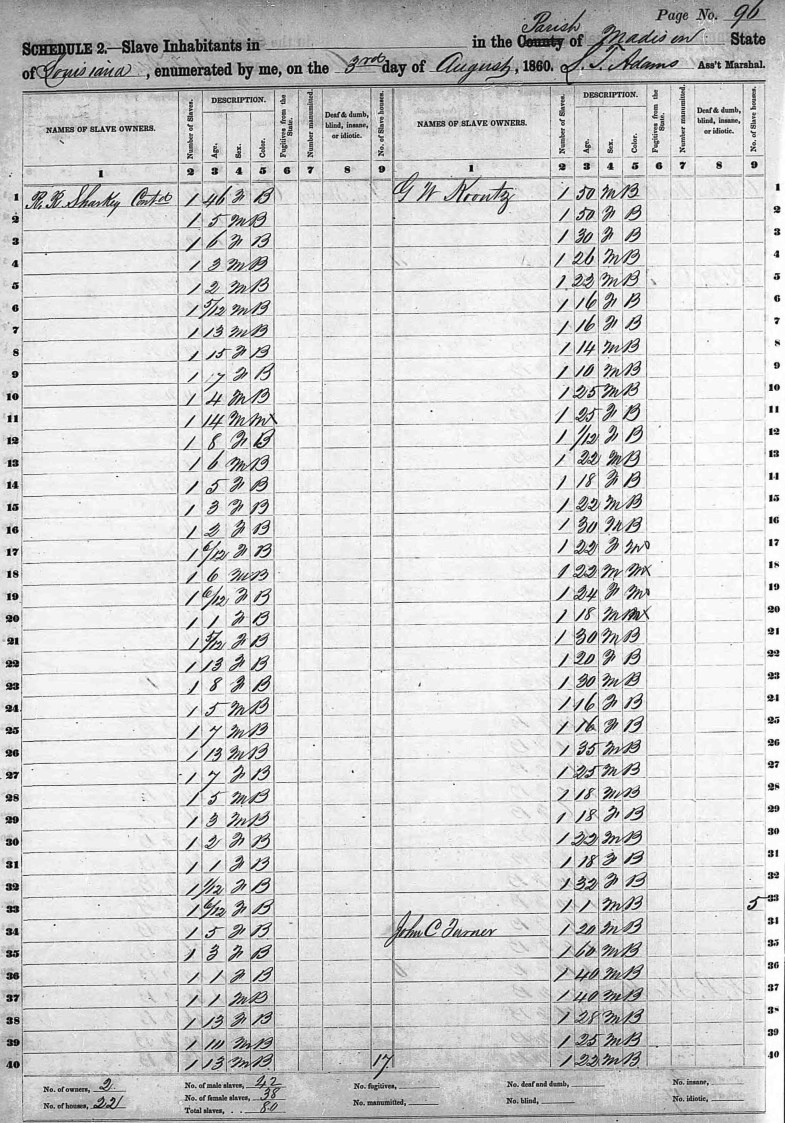 Page No. 96
SCHEDULE 2.—Slave Inhabitants in in the County Parish of Madison State
of Louisiana, enumerated by me, on the 3rd day of August, 1860. L. T. Adams Ass't Marshal.
NAMES OF SLAVE OWNERS. Number of Slaves. DESCRIPTION. Age. Sex. Color. Fugitives from the State. Number manumitted. Deaf & dumb, blind, insane, or idiotic. No. of Slave houses. NAMES OF SLAVE OWNERS. Number of Slaves. DESCRIPTION. Age. Sex. Color. Fugitives from the State. Number manumitted. Deaf & dumb, blind, insane, or idiotic. No. of Slave houses.
1 2 3 4 5 6 7 8 9 1 2 3 4 5 6 7 8 9
1 R. K. Sharkey Contd 1 46 F B G W Koontz 1 50 M B 1
2 1 5 M B 1 50 F B 2
3 1 6 F B 1 30 F B 3
4 1 3 M B 1 26 M B 4
5 1 2 M B 1 22 M B 5
6 1 5/12 M B 1 16 F B 6
7 1 13 M B 1 16 F B 7
8 1 15 F B 1 14 M B 8
9 1 17 F B 1 10 M B 9
10 1 4 M B 1 25 M B 10
11 1 14 M Mx 1 25 F B 11
12 1 8 F B 1 1/12 F B 12
13 1 6 M B 1 22 M B 13
14 1 5 F B 1 18 F B 14
15 1 3 F B 1 22 M B 15
16 1 2 F B 1 30 M B 16
17 1 6/12 F B 1 22 F M 17
18 1 6 M B 1 22 M Mx 18
19 1 6/12 F B 1 24 F Mx 19
20 1 1 F B 1 18 M Mx 20
21 1 5/12 F B 1 30 M B 21
22 1 13 F B 1 20 F B 22
23 1 8 F B 1 30 M B 23
24 1 5 M B 1 16 F B 24
25 1 7 M B 1 16 F B 25
26 1 13 M B 1 35 M B 26
27 1 7 F B 1 25 M B 27
28 1 5 M B 1 18 M B 28
29 1 3 M B 1 18 F B 29
30 1 2 F B 1 22 M B 30
31 1 1 F B 1 18 F B 31
32 1 1/12 F B 1 32 F B 32
33 1 6/12 F B 1 1 M B 5 33
34 1 5 F B John C Turner 1 20 M B 34
35 1 3 F B 1 60 M B 35
36 1 1 F B 1 40 M B 36
37 1 1 M B 1 40 M B 37
38 1 13 F B 1 28 M B 38
39 1 10 M B 1 25 M B 39
40 1 13 M B 17 1 22 M B 40
No. of owners, 2 No. of male slaves, 42 No. fugitives, No. deaf and dumb, No. insane,
No. of houses, 22 No. of female slaves, 38 No. manumitted, No. blind, No. idiotic,
Total slaves, 80